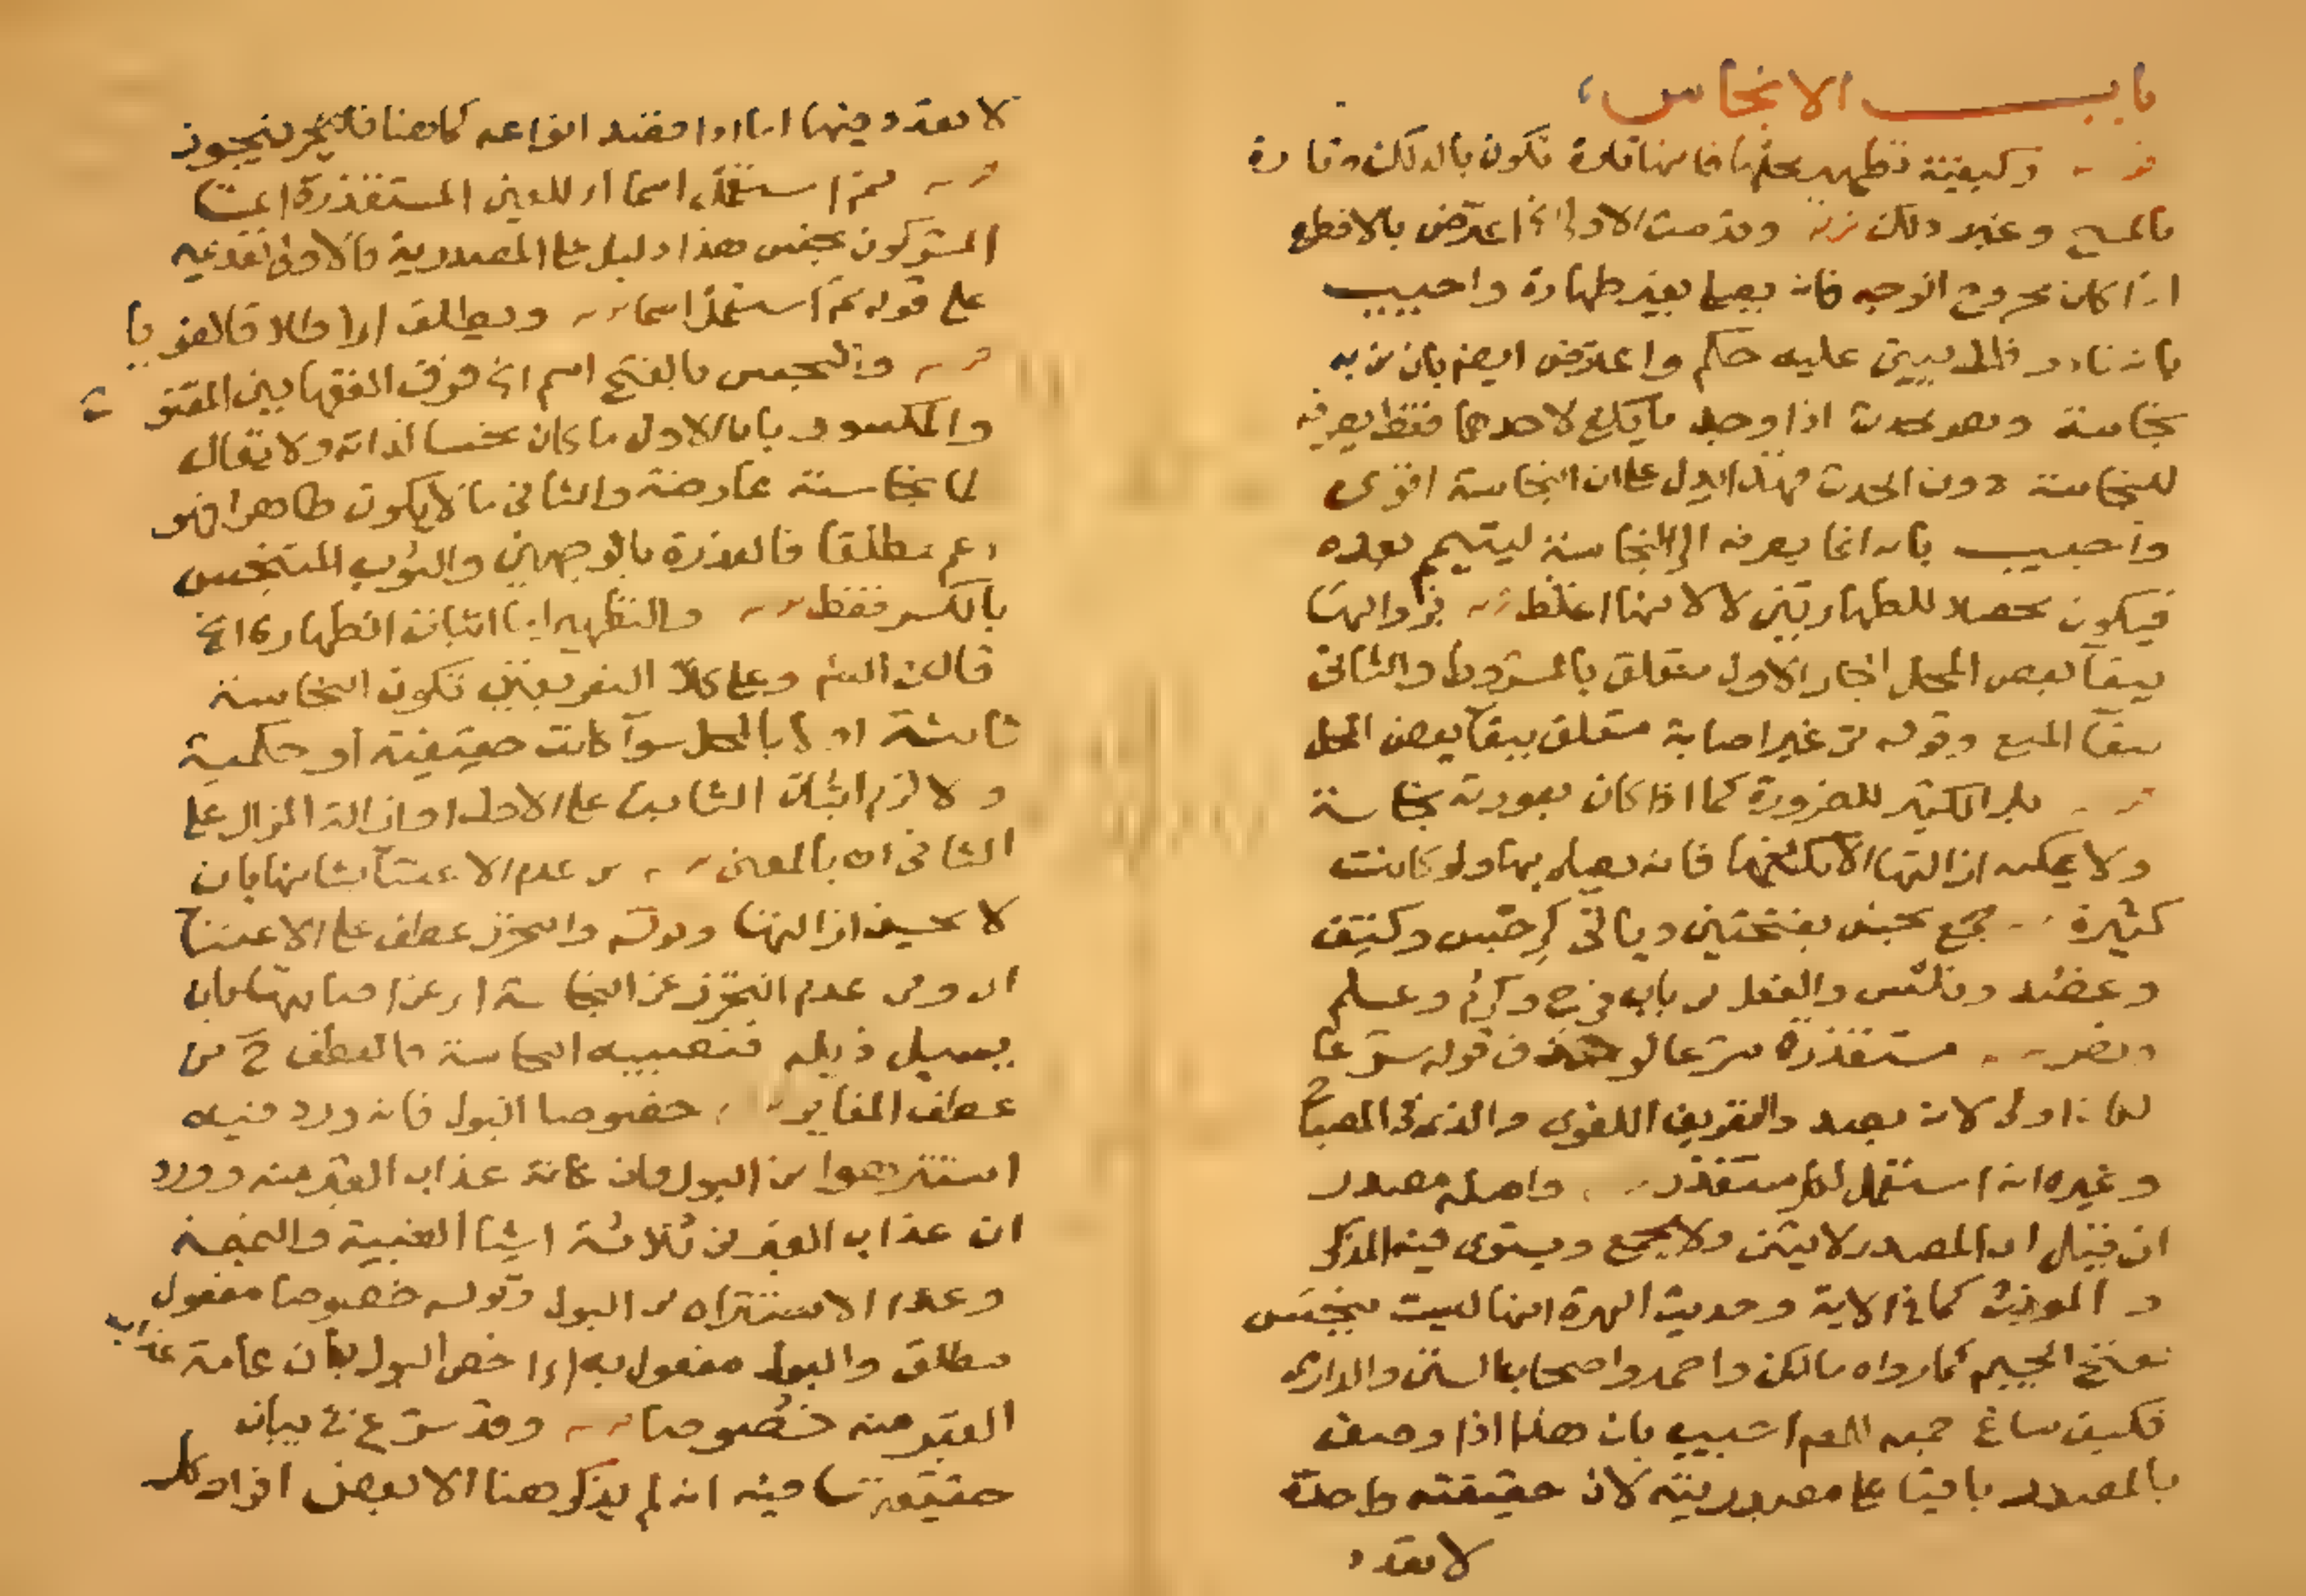 باب الانجاس
وكيفية تطهير محلها فانها تارة تكون بالدلك وتارة
بالمسح وغير ذلك وقدمت الاولى الخ اعترض بالاقطع
اذا كان مجروح الوجه فانه يصلي بغير طهارة واجيب
بانه نادر فلم يبين عليه حكم واعترض ايضا بان من به
نجاسة وهو محدث اذا وجد ما يكفي لاحدهما فقط يصرفه
للنجاسة دون الحدث فهذا يدل على ان النجاسة اقوى
واجيب بانه انما يصرفه الى النجاسة ليتيمم بعده
فيكون محصلا للطهارتين لا لانها اغلظ بزوالها
يبقآ بعض المحل الجار الاول متعلق بالمشروط والثاني
ببقآ المبع وقوله من غير اصابة متعلق ببقآ بعض المحل
بل الكثير للضرورة كما اذا كان بعورته نجاسة
ولا يمكنه ازالتها الا بكشفها فانه يصلي بها ولو كانت
كثيرة جمع نجس بفتحتين وياتي كرجس وكتف
وعضد وفلس والفعل من باب فرح وكرم وعلم
ونصر مستقذرة شرعا لو حذف قوله شرعا
لكان اولى لانه بصدد التعريف اللغوي والذي في المصباح
وغيره انه استعمل لكل مستقذر واصله مصدر
ان قيل ان المصدر لا يثنى ولا يجمع ويستوي فيه المذكر
والمونث كما في الاية وحديث الهرة انها ليست بنجس
بفتح الجيم كما رواه مالك واحمد واصحاب السنن والدارمي
فكيف ساغ جمعه اجيب بان هذا اذا وصف
بالمصدر باقيا على مصدريته لان حقيقته واحدة
لا تعدد
لا تعدد فيها اما اذا قصد انواعه كما هنا فيجوز
ثم استعمل اسما اي للعين المستقذرة انما
المشركون نجس هذا دليل على المصدرية فالاولى تقديمه
على قوله ثم استعمل اسما ويطلق اي اطلاقا لغويا
والنجس بالفتح اسم الخ فرق الفقها بين المفتوح
والمكسور بان الاول ما كان نجسا لذاته ولا يقال
لما نجاسته عارضة والثاني ما لا يكون طاهرا فهو
اعم مطلقا فالعذرة بالوجهين والثوب المتنجس
بالكسر فقط والتطهير اما اثبات الطهارة الخ
قال في النهر وعلى كلا التعريفين تكون النجاسة
ثابتة اولا بالمحل سوآ كانت حقيقية او حكمية
والا لزم اثبات الثابت على الاول او ازالة المزال على
الثاني اه بالمعنى من عدم الاعتنآ بشانها بان
لا يحسن ازالتها وقوله والتحرز عطف على الاعتنا
اي ومن عدم التحرز عن النجاسة اي عن اصابتها بان
يسبل ذيله فتصيبه النجاسة فالعطف ح من
عطف المغاير خصوصا البول فانه ورد فيه
استنزهوا من البول فان عامة عذاب القبر منه وورد
ان عذاب القبر من ثلاثة اشيا الغيبة والنميمة
وعدم الاستنزاه من البول وقوله خصوصا مفعول
مطلق والبول مفعول به اي اخص البول بان عامة عذاب
القبر منه خصوصا وقد شرع في بيان
حقيقتها فيه انه لم يذكر هنا الا بعض افراد كل